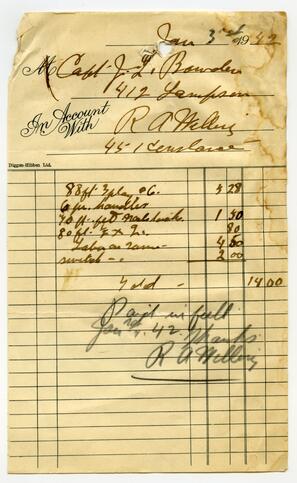 Jan 3rd 1942
M Capt J. L. Bowden
412 Lampson
In Account With
R A Willing
45-1 Constance
Diggon-Hibben Ltd.
88 ft 3 ply @ 6. 5 28
6 pr. handles
70 ft. 1 40
80 ft. 80
Labor same 4 00
switch -. 2 00
Total - 14.00
Paid in full
Jan 42 Thanks
R A Willing